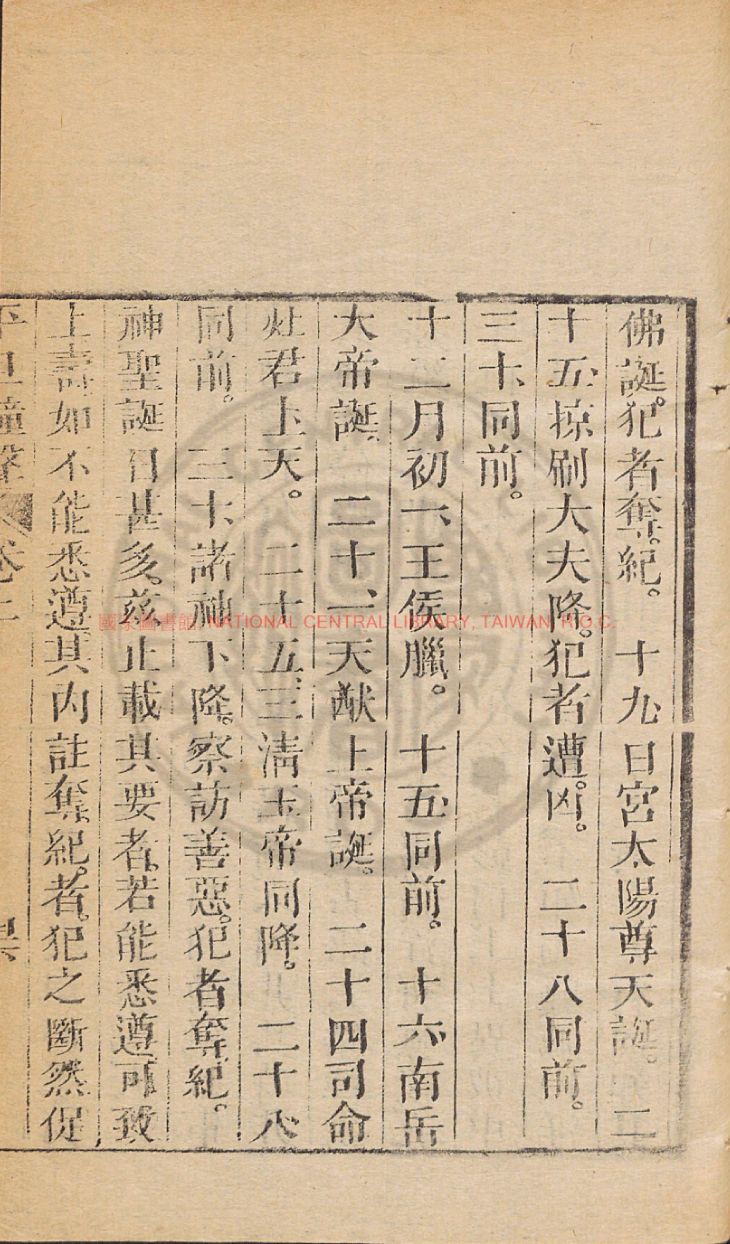 佛誕。犯者奪紀。　十九、日宮太陽尊天誕。　二
十五、掠刷大夫降。犯者遭凶。　二十八同前。
三十、同前。
十二月初一、王侯臘。　十五、同前。　十六、南岳
大帝誕。　二十一、天猷上帝誕。　二十四司命
灶君上天。　二十五、三淸玉帝同降。　二十八、
同前。　三十、諸神下降。察訪善惡。犯者奪紀。
神聖誕日甚多。茲止載其要者。若能悉遵。可致
上壽。如不能悉遵。其內註奪紀者。犯之斷然促
國家圖書館, NATIONAL CENTRAL LIBRARY, TAIWAN, R.O.C.